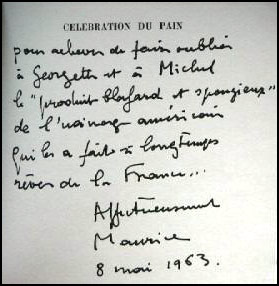 CELEBRATION DU PAIN
pour achever de faire oublier
à Georgette et à Michel
le "produit blafard et spongieux"
de l'usinage américain
qui les a fait si longtemps
rêver de la France...
Affectueusement
Maurice
8 mai 1963.